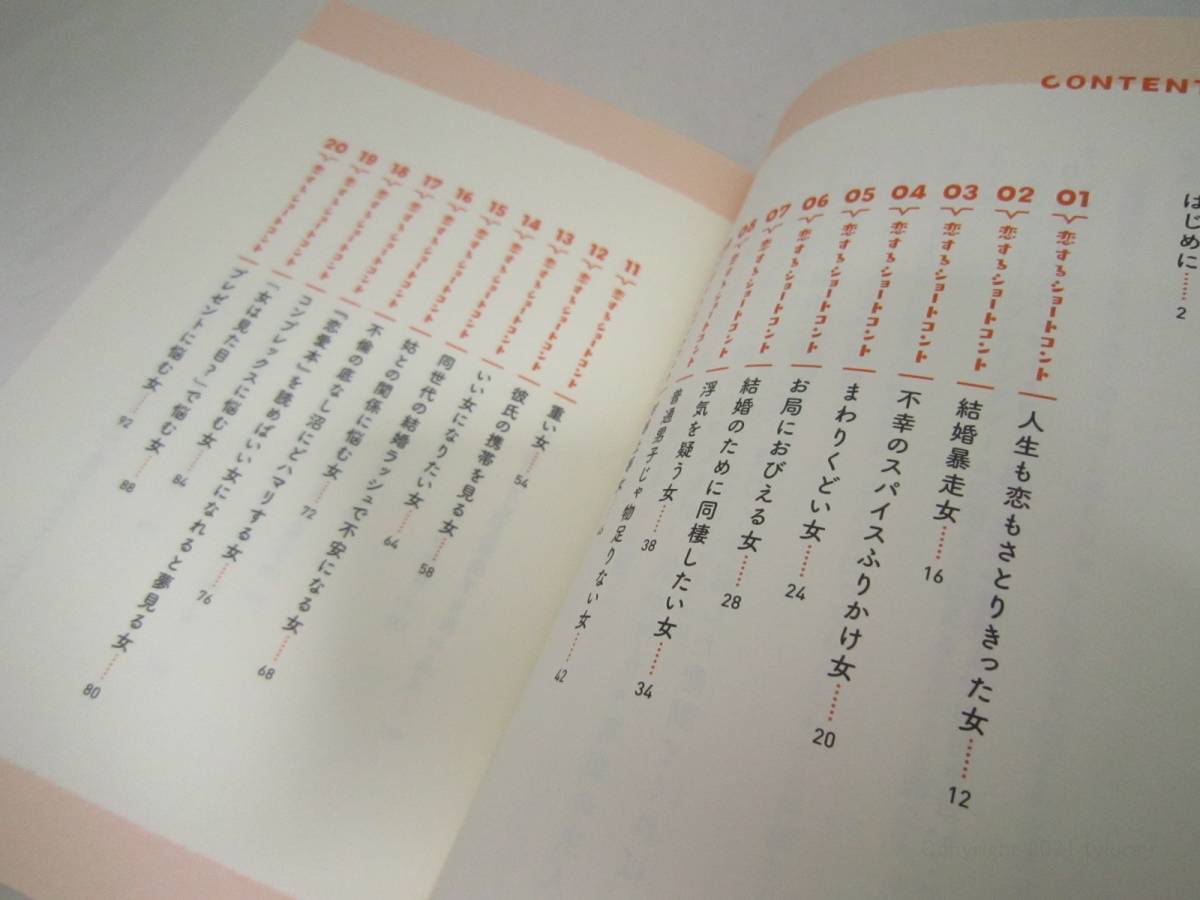 CONTENT
はじめに……2
01 恋するショートコント 人生も恋もさとりきった女……12
02 恋するショートコント 結婚暴走女……16
03 恋するショートコント 不幸のスパイスふりかけ女……20
04 恋するショートコント まわりくどい女……24
05 恋するショートコント お局におびえる女……28
06 恋するショートコント 結婚のために同棲したい女……34
07 恋するショートコント 浮気を疑う女……38
08 恋するショートコント 普通男子じゃ物足りない女……42
11 恋するショートコント 重い女……54
12 恋するショートコント 彼氏の携帯を見る女……58
13 恋するショートコント いい女になりたい女……64
14 恋するショートコント 同世代の結婚ラッシュで不安になる女……68
15 恋するショートコント 姑との関係に悩む女……72
16 恋するショートコント 不倫の底なし沼にどハマリする女……76
17 恋するショートコント 「恋愛本」を読めばいい女になれると夢見る女……80
18 恋するショートコント コンプレックスに悩む女……84
19 恋するショートコント 「女は見た目？」で悩む女……88
20 恋するショートコント プレゼントに悩む女……92